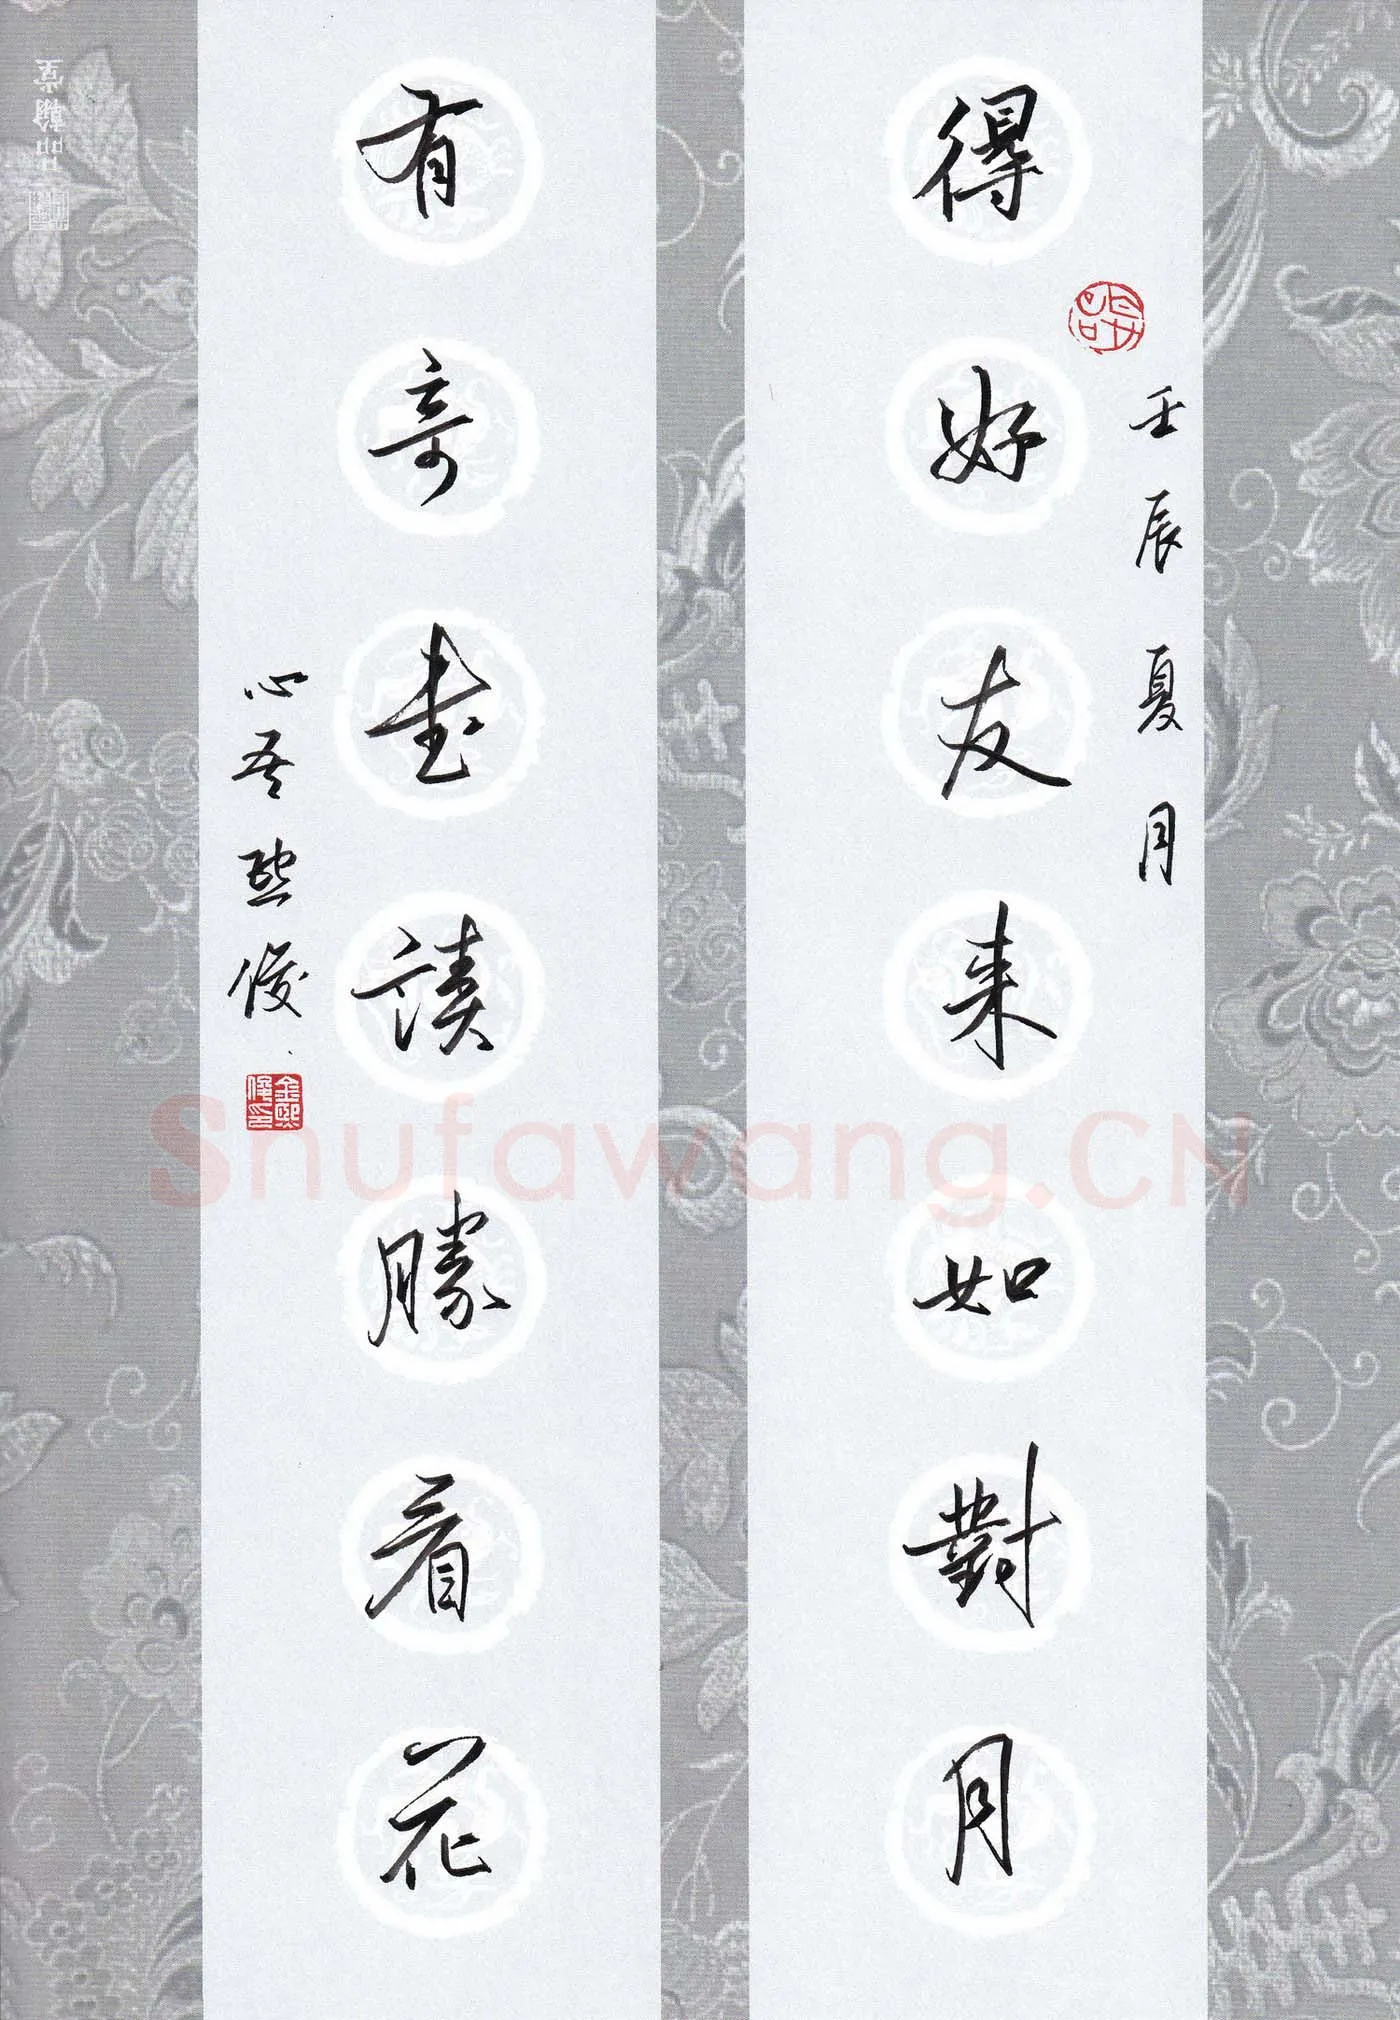 得好友来如對月
壬辰夏月
有奇書讀勝看花
心吾熙俊
金熙俊印
Shufawang.CN